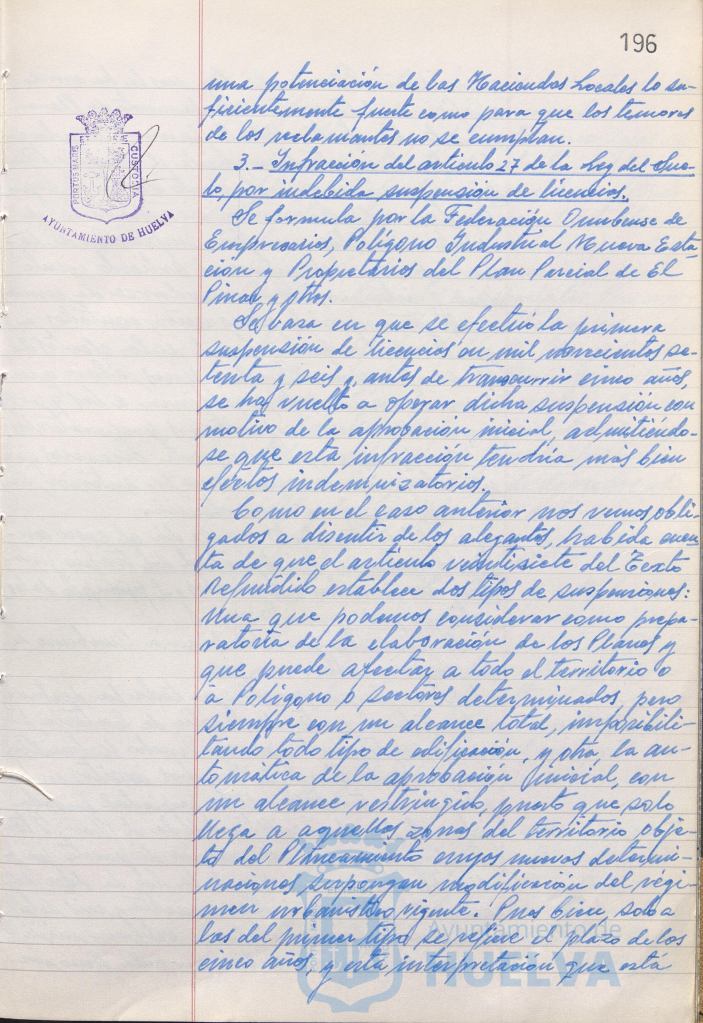 196
una potenciación de las Haciendas Locales lo su-
ficientemente fuerte como para que los temores
de los reclamantes no se cumplan.
3.- Infracción del artículo 27 de la Ley del Sue-
lo, por indebida suspensión de licencias.
Se formula por la Federación Onubense de
Empresarios, Polígono Industrial Nueva Esta-
ción y Propietarios del Plan Parcial de El
Pinar y otros.
Se basa en que se efectuó la primera
suspensión de licencias en mil novecientos se-
tenta y seis y, antes de transcurrir cinco años
se ha vuelto a operar dicha suspensión con
motivo de la aprobación inicial, admitiéndo-
se que esta infracción tendría más bien
efectos indemnizatorios.
Como en el caso anterior nos vemos obli-
gados a disentir de los alegantes, habida cuen-
ta de que el artículo veintisiete del Texto
Refundido establece dos tipos de suspensiones:
Una que podemos considerar como prepa-
ratoria de la elaboración de los Planes y
que puede afectar a todo el territorio o
a Polígono o sectores determinados, pero
siempre con un alcance total, imposibili-
tando todo tipo de edificación, y otra, la au-
tomática de la aprobación inicial, con
un alcance restringido, puesto que solo
llega a aquellas zonas del territorio obje-
to del Planeamiento cuyas nuevas determi-
naciones supongan modificación del régi-
men urbanístico vigente. Pues bien solo a
las del primer tipo se refiere el plazo de los
cinco años, y esta interpretación que está
PORTUS MARIS
CUSTODIA
AYUNTAMIENTO DE HUELVA
Ayuntamiento de
HUELVA